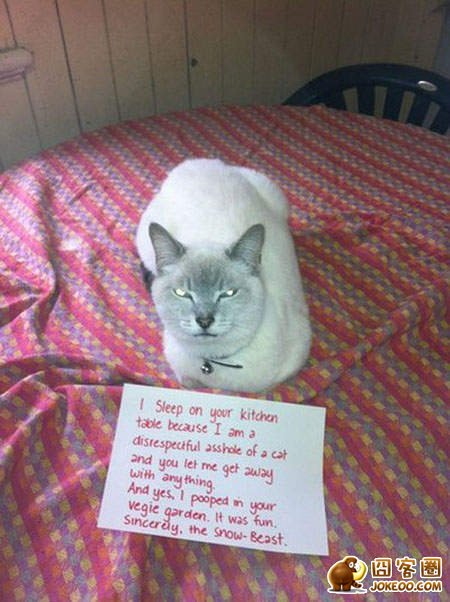 I sleep on your kitchen
table because I am a
disrespectful asshole of a cat
and you let me get away
with anything.
And yes, I pooped in your
vegie garden. It was fun.
Sincerely, the Snow-Beast.
囧客圈
JOKEOO.COM